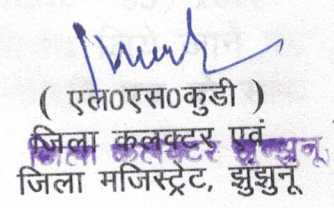 ( एल0एस0कुडी )
जिला कलक्टर एवं
जिला कलेक्टर झुन्झुनू
जिला मजिस्ट्रेट, झुझुनू